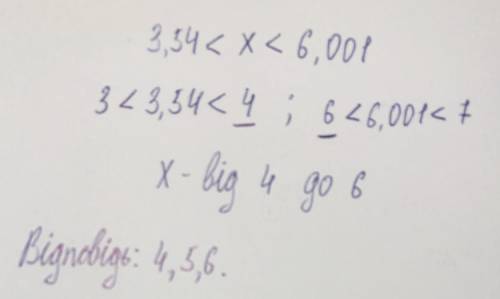 3,54 < x < 6,001
3 < 3,54 < 4 ; 6 < 6,001 < 7
x - від 4 до 6
Відповідь: 4, 5, 6.